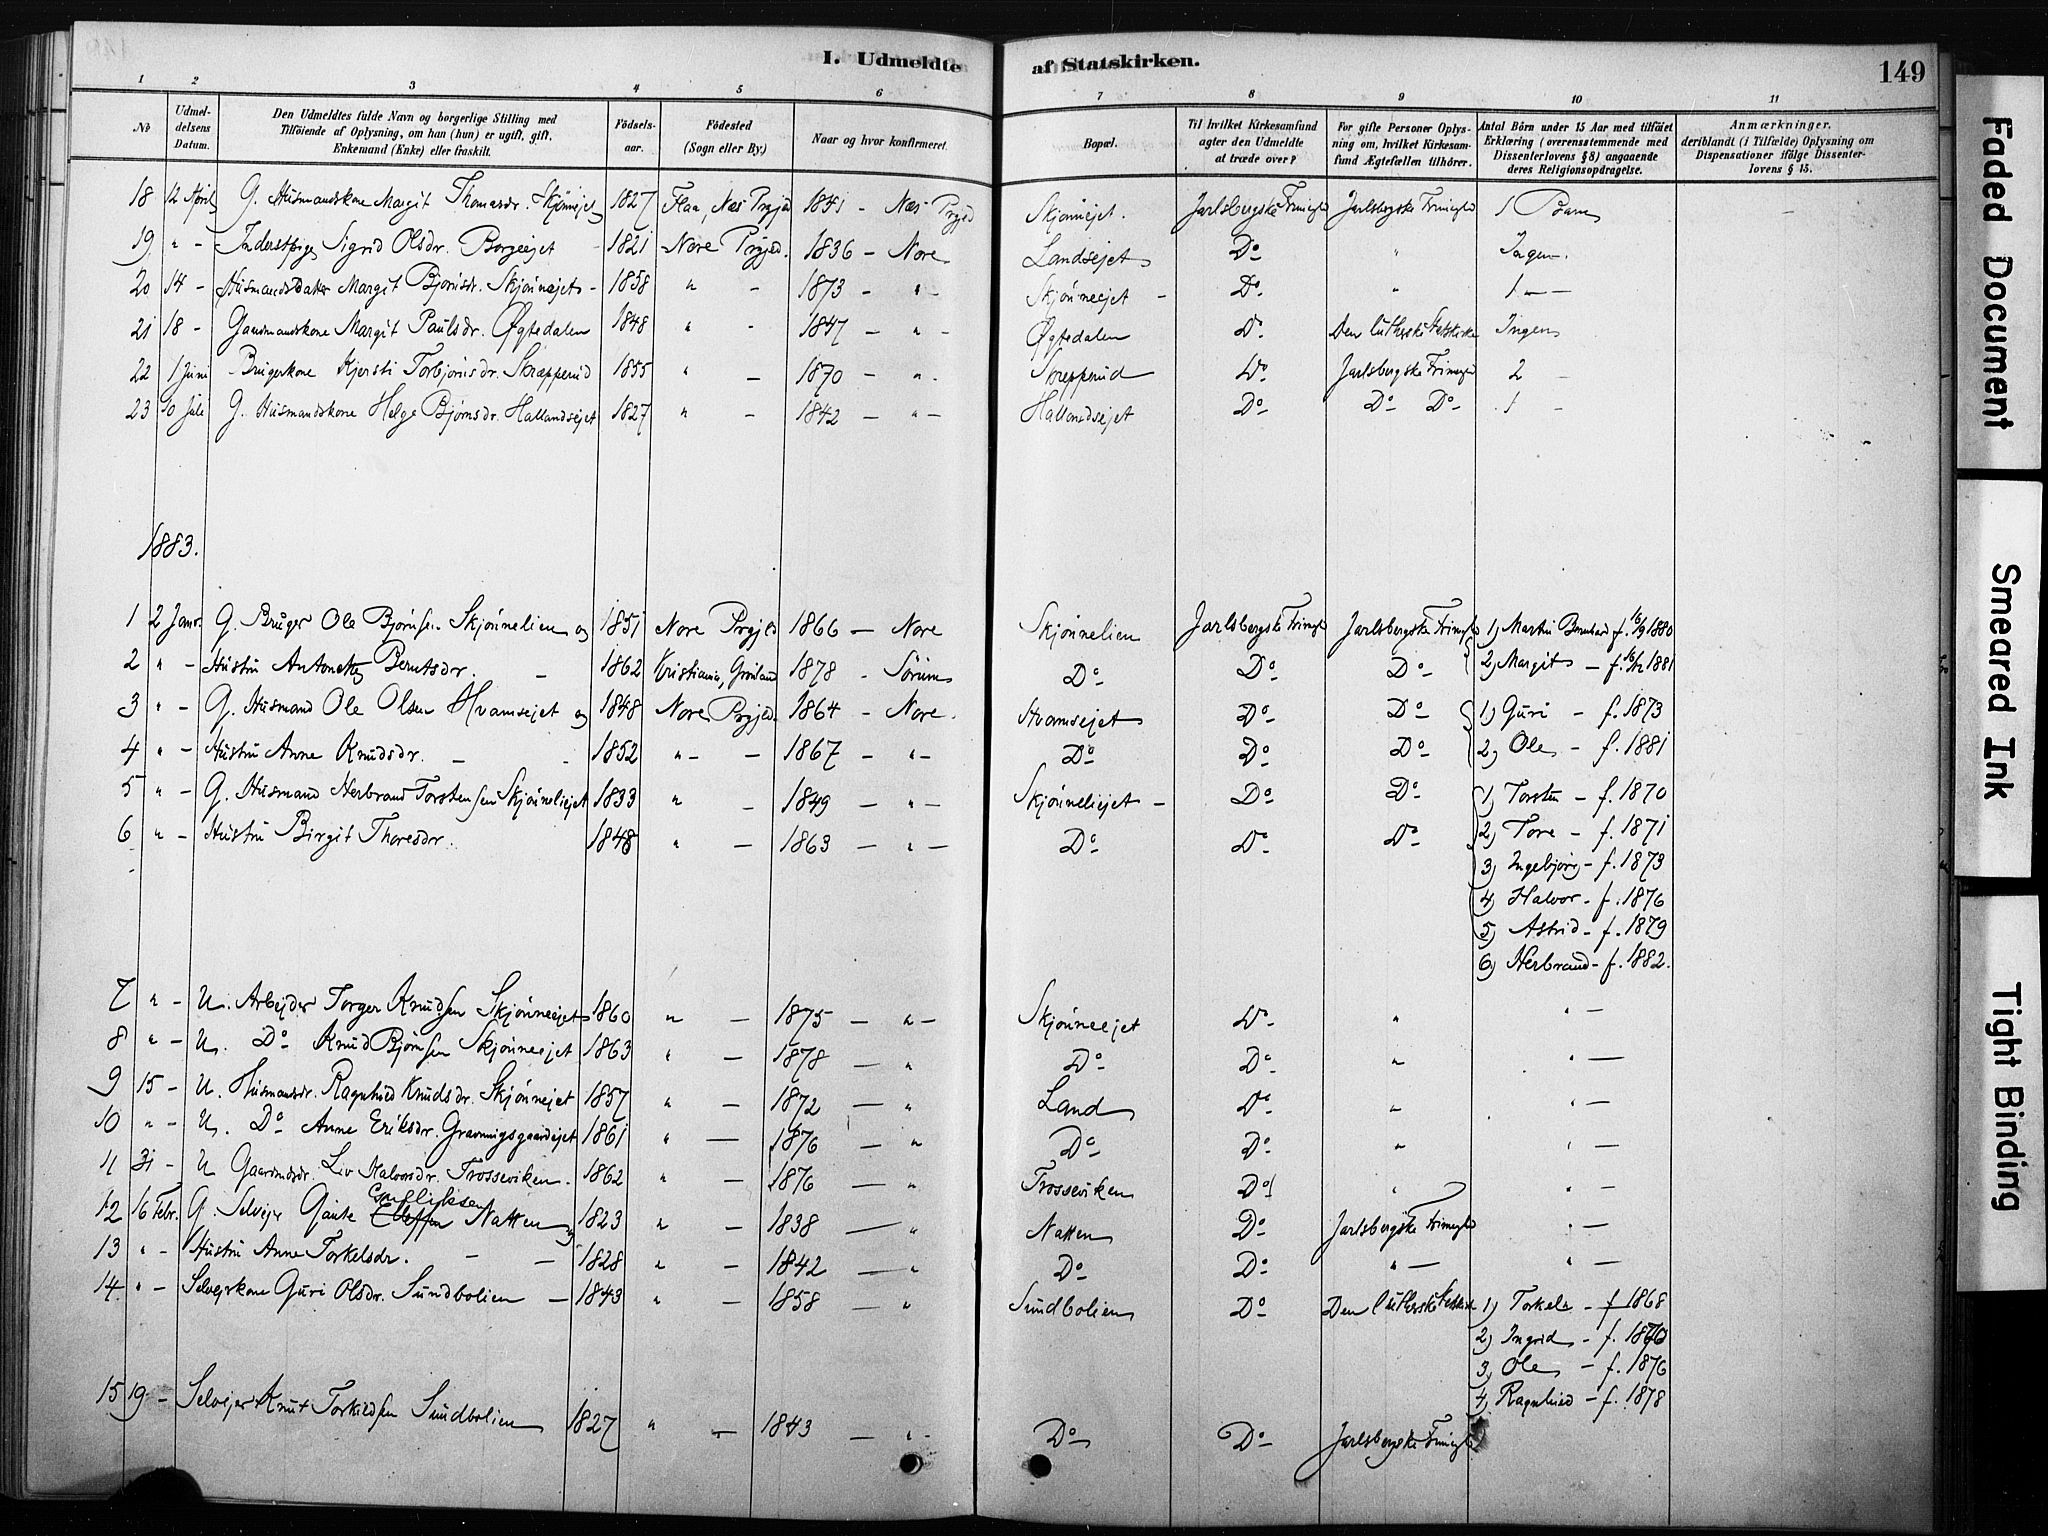 I. Udmeldte af Statskirken.
149
1 2 3 4 5 6 7 8 9 10 11
No | Udmeldelsens Datum. | Den Udmeldtes fulde Navn og borgerlige Stilling med Tilføiende af Oplysning, om han (hun) er ugift, gift, Enkemand (Enke) eller fraskilt. | Födselsaar. | Födested (Sogn eller By.) | Naar og hvor konfirmeret. | Bopæl. | Til hvilket Kirkesamfund agter den Udmeldte at træde over? | For gifte Personer Oplysning om, hvilket Kirkesamfund Ægtefællen tilhörer. | Antal Börn under 15 Aar med tilföiet Erklæring (overensstemmende med Dissenterlovens § 8) angaaende deres Religionsopdragelse. | Anmærkninger. deriblandt (i Tilfælde) Oplysning om Dispensationer ifölge Dissenterlovens § 15.
18 12 April G. Husmandskone Margit Thomasdr. Skjønnejet 1827 Flaa, Næs Prgjed 1841 - Næs Prgjd Skjønnejet. Jarlsbergske Frimghd Jarlsbergske Frimghd 1 Barn -
19 " - Inderstpige Sigrid Olsdr. Borgeiejet - 1821 Nore Prgjed. 1836 - Nore Landsejet Do " Ingen.
20 14 - Husmandsdatter Margit Bjørnsdr. Skjønneejet - 1858 " - 1873 - " - Skjønneejet - Do. " 1 -
21 18 - Gaardmandskone Margit Paulsdr. Øgtedalen 1848 " - 1847 - " - Øgtedalen Do. Den lutherske Statskirke Ingen
22 1 Juni Brugerkone Kjersti Torbjørnsdr. Skrepperud 1855 " - 1870 - " - Skrepperud Do. Jarlsbergske Frimghd 2 -
23 10 Juli G. Husmandskone Helge Bjørnsdr. Hallandsejet 1827 " - 1842 - " - Hallandsejet Do - Do - Do - 1 -
1883.
1 2 Janr. G. Bruger Ole Bjørnsen Skjønnelien og 1851 Nore Prgjed 1866 - Nore Skjønnelien Jarlsbergske Frimghd Jarlsbergske Frimghd 1) Martin Bernhard f. 16/9 1880
2 " - Hustru Antonette Berntsdr. - 1862 Kristiania, Grønland 1878 - Sørum Do - Do - Do - 2) Margit - f. 16/12 1881
3 " - G. Husmand Ole Olsen Hvamsejet og 1848 Nore Prgjed. 1864 - Nore. Hvamsejet Do - Do - 1) Guri - f. 1873
4 " - Hustru Anne Knudsdr. - - 1852 " - - 1867 - " - Do - Do - Do - 2) Ole - f. 1881
5 " - G. Husmand Herbrand Torstensen Skjønneliejet 1833 " - 1849 - " - Skjønneliejet - Do - Do - 1) Torsten - f. 1870
6 " - Hustru Birgit Thoresdr. 1848 " - 1863 - " - Do - Do - Do - 2) Tore - f. 1871
3) Ingebjørg - f. 1873
4) Halvor - f. 1876
5) Astrid - f. 1879
6) Herbrand - f. 1882.
7 " - U. Arbejder Torger Knudsen Skjønneejet 1860 " - 1875 - " - Skjønneejet Do - " " -
8 " - U. Do - Knud Bjørnsen Skjønneejet 1863 " - 1878 - " Do - Do - " " -
9 15 - U. Husmandsdr. Ragnhild Knudsdr. Skjønnejet 1857 " - 1872 - " Land Do - " " -
10 " - U. Do - Anne Eriksdr. Gravningsgaardejet 1861 " - 1876 - " Do - Do - " " -
11 31 - U Gaarmdsdr. Liv Halvorsdr. Frosseviken. 1862 " - 1876 - " Frosseviken Do - " " -
12 16 Febr. G. Selvejer Gaute Gulliksen Natten og 1823 " - 1838 - " Natten Do - Jarlsbergske Frimghd " -
13 " - Hustru Anne Torkelsdr. - - 1828 " - 1842 - " Do - Do - " - " -
14. " - Selvejerkone Guri Olsdr. Sundbolien - 1843 " - 1858 - " Sundbolien Do Den lutherske Statskirke 1) Torkel - f 1868
2) Ingrid - f. 1870
3) Ole - f. 1876
4) Ragnhild - f. 1878
15 19 - Selvejer Knut Torkildsen Sundbolien 1827 " - 1843 - " - Do - Do - Jarlsbergske Frimghd
Faded Document
Smeared Ink
Tight Binding